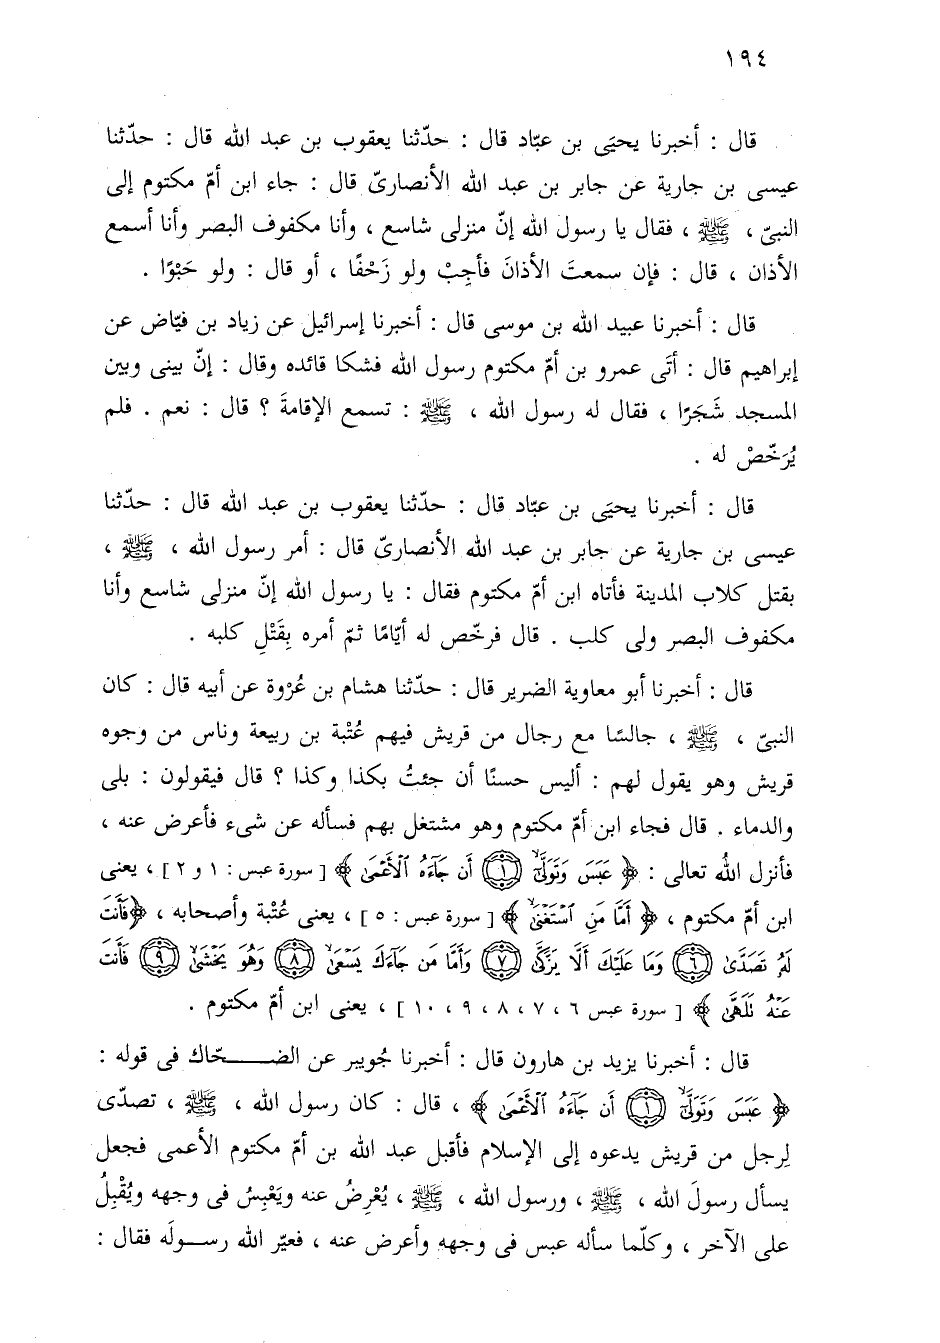 ١٩٤
قال : أخبرنا يحيَى بن عبّاد قال : حدّثنا يعقوب بن عبد الله قال : حدّثنا
عيسى بن جارية عن جابر بن عبد الله الأنصارىّ قال : جاء ابن أمّ مكتوم إلى
النبىّ ، ﷺ ، فقال يا رسول الله إنّ منزلى شاسع ، وأنا مكفوف البصر وأنا أسمع
الأذان ، قال : فإن سمعتَ الأذانَ فأجِبْ ولو زَحْفًا ، أو قال : ولو حَبْوًا .
قال : أخبرنا عبيد الله بن موسى قال : أخبرنا إسرائيل عن زياد بن فيّاض عن
إبراهيم قال : أتَى عمرو بن أمّ مكتوم رسول الله فشكا قائده وقال : إنّ بينى وبين
المسجد شَجَرًا ، فقال له رسول الله ، ﷺ : تسمع الإقامةَ ؟ قال : نعم . فلم
يُرَخّصْ له .
قال : أخبرنا يحيَى بن عبّاد قال : حدّثنا يعقوب بن عبد الله قال : حدّثنا
عيسى بن جارية عن جابر بن عبد الله الأنصارىّ قال : أمر رسول الله ، ﷺ ،
بقتل كلاب المدينة فأتاه ابن أمّ مكتوم فقال : يا رسول الله إنّ منزلى شاسع وأنا
مكفوف البصر ولى كلب . قال فرخّص له أيّامًا ثمّ أمره بِقَتْلِ كلبه .
قال : أخبرنا أبو معاوية الضرير قال : حدّثنا هشام بن عُرْوة عن أبيه قال : كان
النبىّ ، ﷺ ، جالسًا مع رجال من قريش فيهم عُتْبة بن ربيعة وناس من وجوه
قريش وهو يقول لهم : أليس حسنًا أن جئتُ بكذا وكذا ؟ قال فيقولون : بلى
والدماء . قال فجاء ابن أمّ مكتوم وهو مشتغل بهم فسأله عن شىء فأعرض عنه ،
فأنزل اللهُ تعالى : ﴿ عَبَسَ وَتَوَلَّىٰٓ ۝١ أَن جَآءَهُ ٱلْأَعْمَىٰ ﴾ [ سورة عبس : ١ و ٢ ] ، يعنى
ابن أمّ مكتوم ، ﴿ أَمَّا مَنِ ٱسْتَغْنَىٰ ﴾ [ سورة عبس : ٥ ] ، يعنى عُتْبة وأصحابه ، ﴿فَأَنتَ
لَهُ تَصَدَّىٰ ۝٦ وَمَا عَلَيْكَ أَلَّا يَزَّكَّىٰ ۝٧ وَأَمَّا مَن جَآءَكَ يَسْعَىٰ ۝٨ وَهُوَ يَخْشَىٰ ۝٩ فَأَنتَ
عَنْهُ تَلَهَّىٰ ﴾ [ سورة عبس ٦ ، ٧ ، ٨ ، ٩ ، ١٠ ] ، يعنى ابن أمّ مكتوم .
قال : أخبرنا يزيد بن هارون قال : أخبرنا جُويبر عن الضـــحّاك فى قوله :
﴿ عَبَسَ وَتَوَلَّىٰٓ ۝١ أَن جَآءَهُ ٱلْأَعْمَىٰ ﴾ ، قال : كان رسول الله ، ﷺ ، تصدّى
لِرجل من قريش يدعوه إلى الإسلام فأقبل عبد الله بن أمّ مكتوم الأعمى فجعل
يسأل رسولَ الله ، ﷺ ، ورسول الله ، ﷺ ، يُعْرِضُ عنه ويَعْبِسُ فى وجهه ويُقْبِلُ
على الآخر ، وكلّما سأله عبس فى وجهه وأعرض عنه ، فعيّر الله رســولَه فقال :